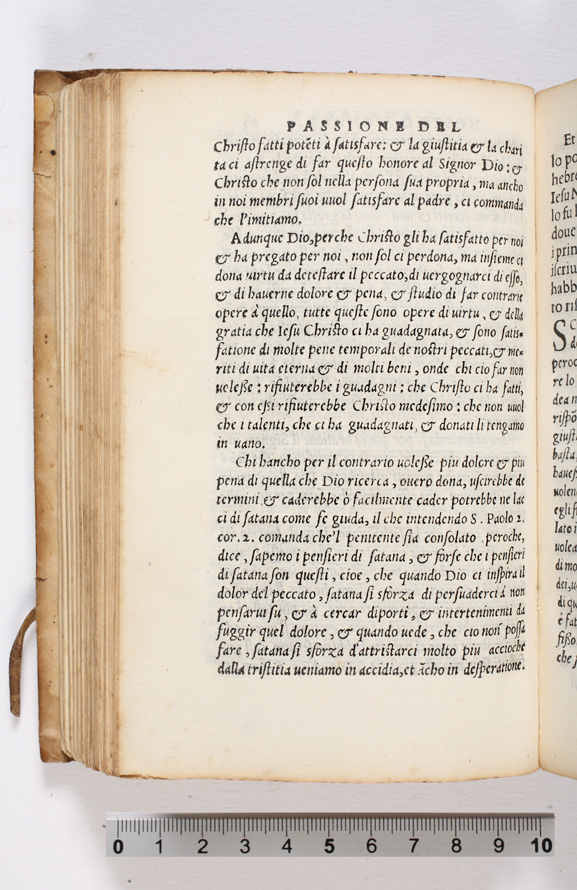 PASSIONE DEL
Chriſto fatti potẽti à ſatisfare: & la giuſtitia & la chari
ta ci aſtrenge di far queſto honore al Signor Dio: &
Chriſto che non ſol nella perſona ſua propria, ma ancho
in noi membri ſuoi uuol ſatisfare al padre, ci commanda
che l'imitiamo.
Adunque Dio, perche Chriſto gli ha ſatisfatto per noi
& ha pregato per noi, non ſol ci perdona, ma inſieme ci
dona uirtu da deteſtare il peccato, di uergognarci di eſſo,
& di hauerne dolore & pena, & ſtudio di far contrarie
opere à quello, tutte queſte ſono opere di uirtu, & della
gratia che Ieſu Chriſto ci ha guadagnata, & ſono ſatis-
fatione di molte pene temporali de noſtri peccati, & me-
riti di uita eterna & di molti beni, onde chi cio far non
uoleße: rifiuterebbe i guadagni: che Chriſto ci ha fatti,
& con eßi rifiuterebbe Chriſto medeſimo: che non uuol
che i talenti, che ci ha guadagnati, & donati li tengamo
in uano.
Chi hancho per il contrario uoleße piu dolore & piu
pena di quella che Dio ricerca, ouero dona, uſcirebbe de
termini & caderebbe ò facilmente cader potrebbe ne lac
ci di ſatana come fe giuda, il che intendendo S. Paolo 2.
cor. 2. comãnda che'l penitente ſia conſolato, peroche,
dice, ſapemo i penſieri di ſatana, & forſe che i penſieri
di ſatana ſon queſti, cioe, che quando Dio ci inſpira il
dolor del peccato, ſatana ſi sforza di perſuaderci à non
penſarui ſu, & à cercar diporti, & intertenimenti da
fuggir quel dolore, & quando uede, che cio non poſſa
fare, ſatana ſi sforza d'attriſtarci molto piu accioche
dalla triſtitia ueniamo in accidia, et ãcho in deſperatione.
Et
lo po
hebre
Ieſu N
lo fu l
doue
i prin
iſcriu
habb
to riſ
peroc
re lo
dea n
riſpo
giuſt
baſta,
haueſ
uolen
egli ſi
lato i
uolea
di mo
dei, u
di qu
è fat
fißo
che ſ
0 1 2 3 4 5 6 7 8 9 10